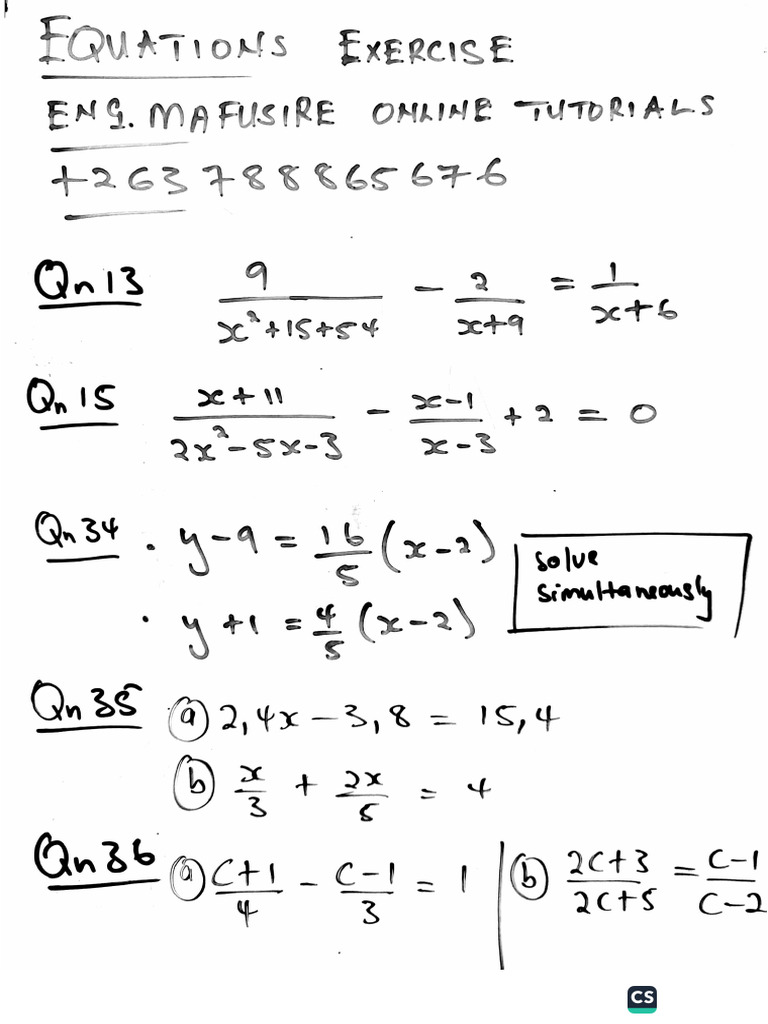 EQUATIONS EXERCISE
ENG. MAFUSIRE ONLINE TUTORIALS
+263788865676
Qn 13 9/(x²+15+54) - 2/(x+9) = 1/(x+6)
Qn 15 (x+11)/(2x²-5x-3) - (x-1)/(x-3) + 2 = 0
Qn 34 . y-9 = 16/5 (x-2)
. y+1 = 4/5 (x-2)
Solve
Simultaneously
Qn 35 (a) 2,4x - 3,8 = 15,4
(b) x/3 + 2x/5 = 4
Qn 36 (a) (C+1)/4 - (C-1)/3 = 1 (b) (2C+3)/(2C+5) = (C-1)/(C-2)
CS